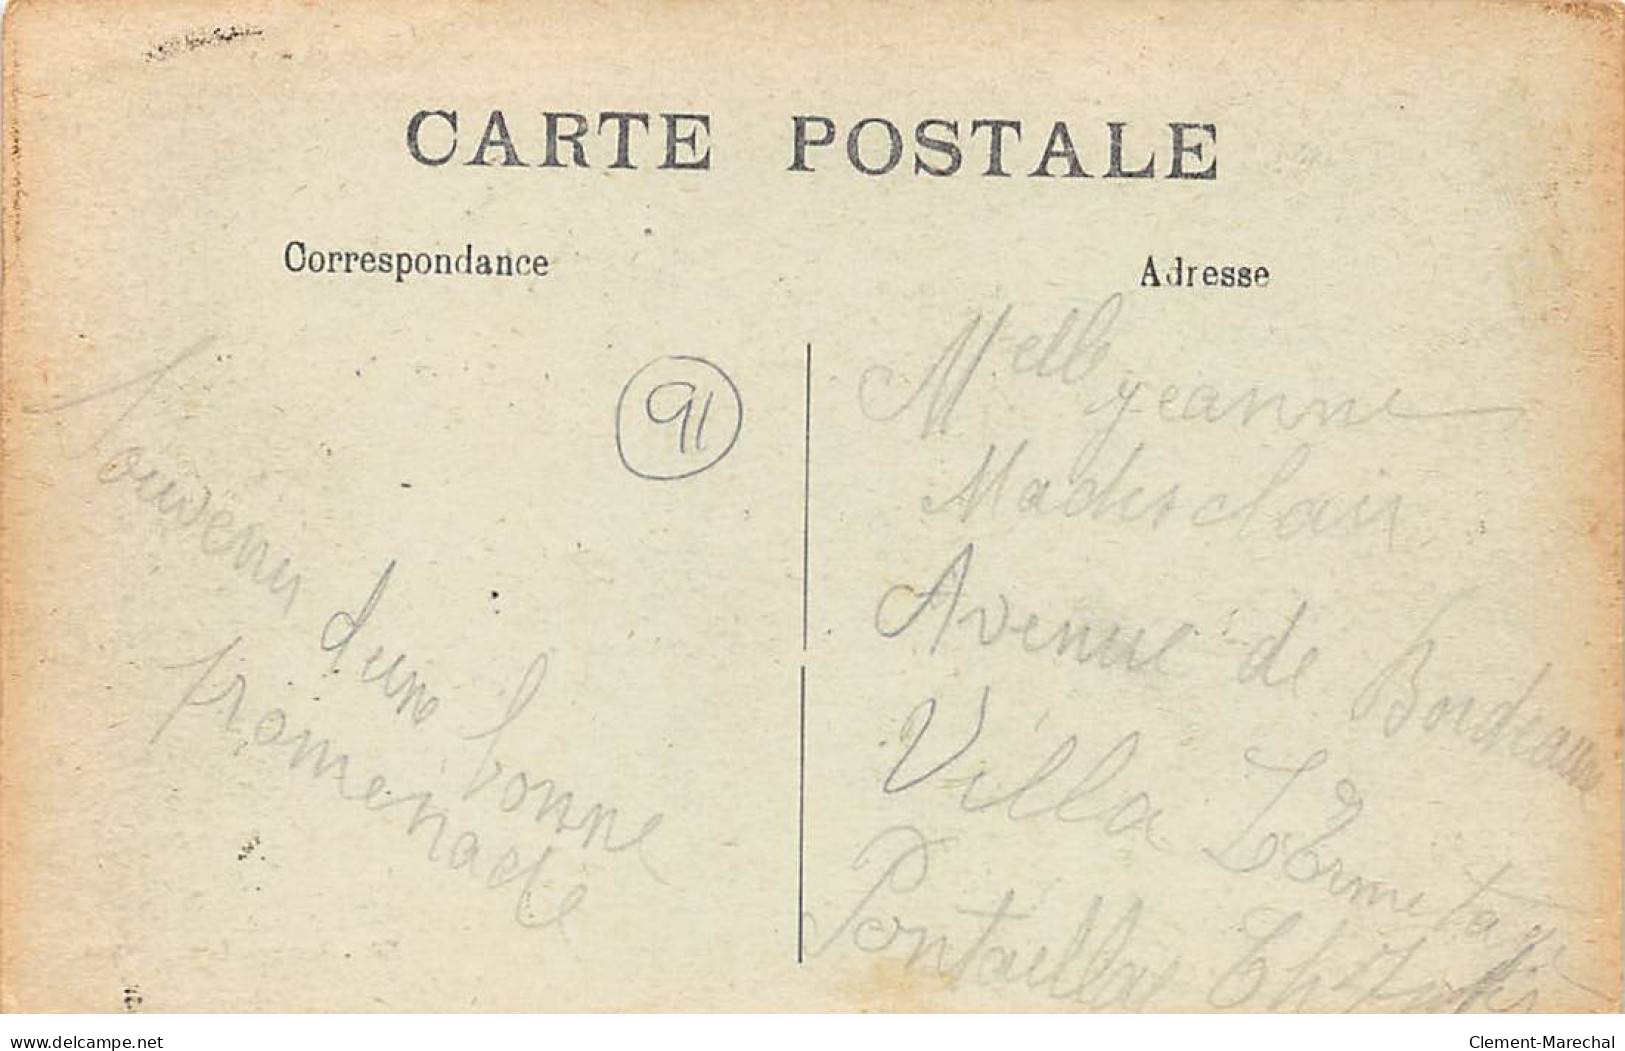 CARTE POSTALE
Correspondance
Adresse
91
Souvenir
d'une bonne
promenade
Melle Jeanne
Avenue de Bordeaux
Villa L'Ermitage
Pontaillac
delcampe.net
Clement-Marechal